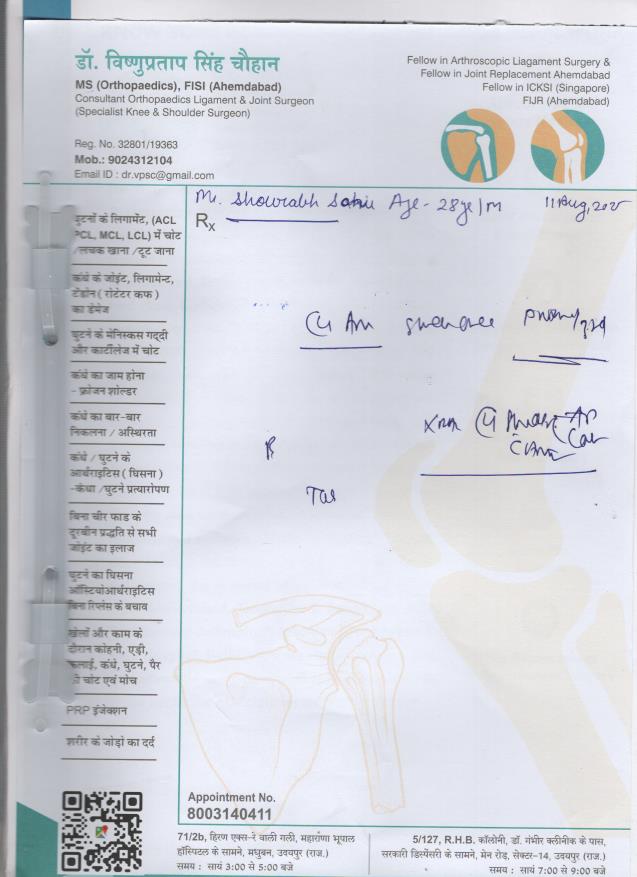 डॉ. विष्णुप्रताप सिंह चौहान
MS (Orthopaedics), FISI (Ahemdabad)
Consultant Orthopaedics Ligament & Joint Surgeon
(Specialist Knee & Shoulder Surgeon)
Reg. No. 32801/19363
Mob.: 9024312104
Email ID : dr.vpsc@gmail.com
Fellow in Arthroscopic Liagament Surgery &
Fellow in Joint Replacement Ahemdabad
Fellow in ICKSI (Singapore)
FIJR (Ahemdabad)
Mr. Age - 28 /M 11 Aug, 2025
Rx
घुटनों के लिगामेंट, (ACL
PCL, MCL, LCL) में चोट
/लचक खाना /टूट जाना
कंधे के जोइंट, लिगामेन्ट,
टेंडोन ( रोटेटर कफ )
का डेमेज
घुटने के मेनिस्कस गद्दी
और कार्टीलेज में चोट
कंधे का जाम होना
- फ्रोजन शोल्डर
कंधे का बार-बार
निकलना / अस्थिरता
कंधे / घुटने के
आर्थराइटिस ( घिसना )
-कंधा /घुटने प्रत्यारोपण
बिना चीर फाड के
दूरबीन प्रद्धति से सभी
जोइंट का इलाज
घुटने का घिसना
ऑस्टियोआर्थराइटिस
बिना रिप्लेस के बचाव
खेलों और काम के
दौरान कोहनी, एड़ी,
कलाई, कंधे, घुटने, पैर
की चोट एवं मोच
PRP इंजेक्शन
शरीर के जोड़ो का दर्द
Appointment No.
8003140411
71/2b, हिरण एक्स-रे वाली गली, महाराणा भूपाल
हॉस्पिटल के सामने, मधुबन, उदयपुर (राज.)
समय : सायं 3:00 से 5:00 बजे
5/127, R.H.B. कॉलोनी, डॉ. गंभीर क्लीनीक के पास,
सरकारी डिस्पेंसरी के सामने, मेन रोड, सेक्टर-14, उदयपुर (राज.)
समय : सायं 7:00 से 9:00 बजे